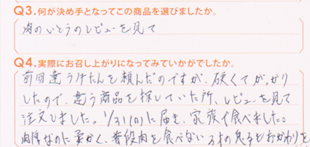 Q3.何が決め手となってこの商品を選びましたか。
肉のいとうのレビューを見て
Q4.実際にお召し上がりになってみていかがでしたか。
前回違うけたんを頼んだのですが、硬くてがっかり
したので、違う商品を探していた所、レビューを見て
注文しました。1/31(日)に届き、家族で食べました。
肉厚なのに柔かく、普段肉を食べない3才の息子もおかわりを